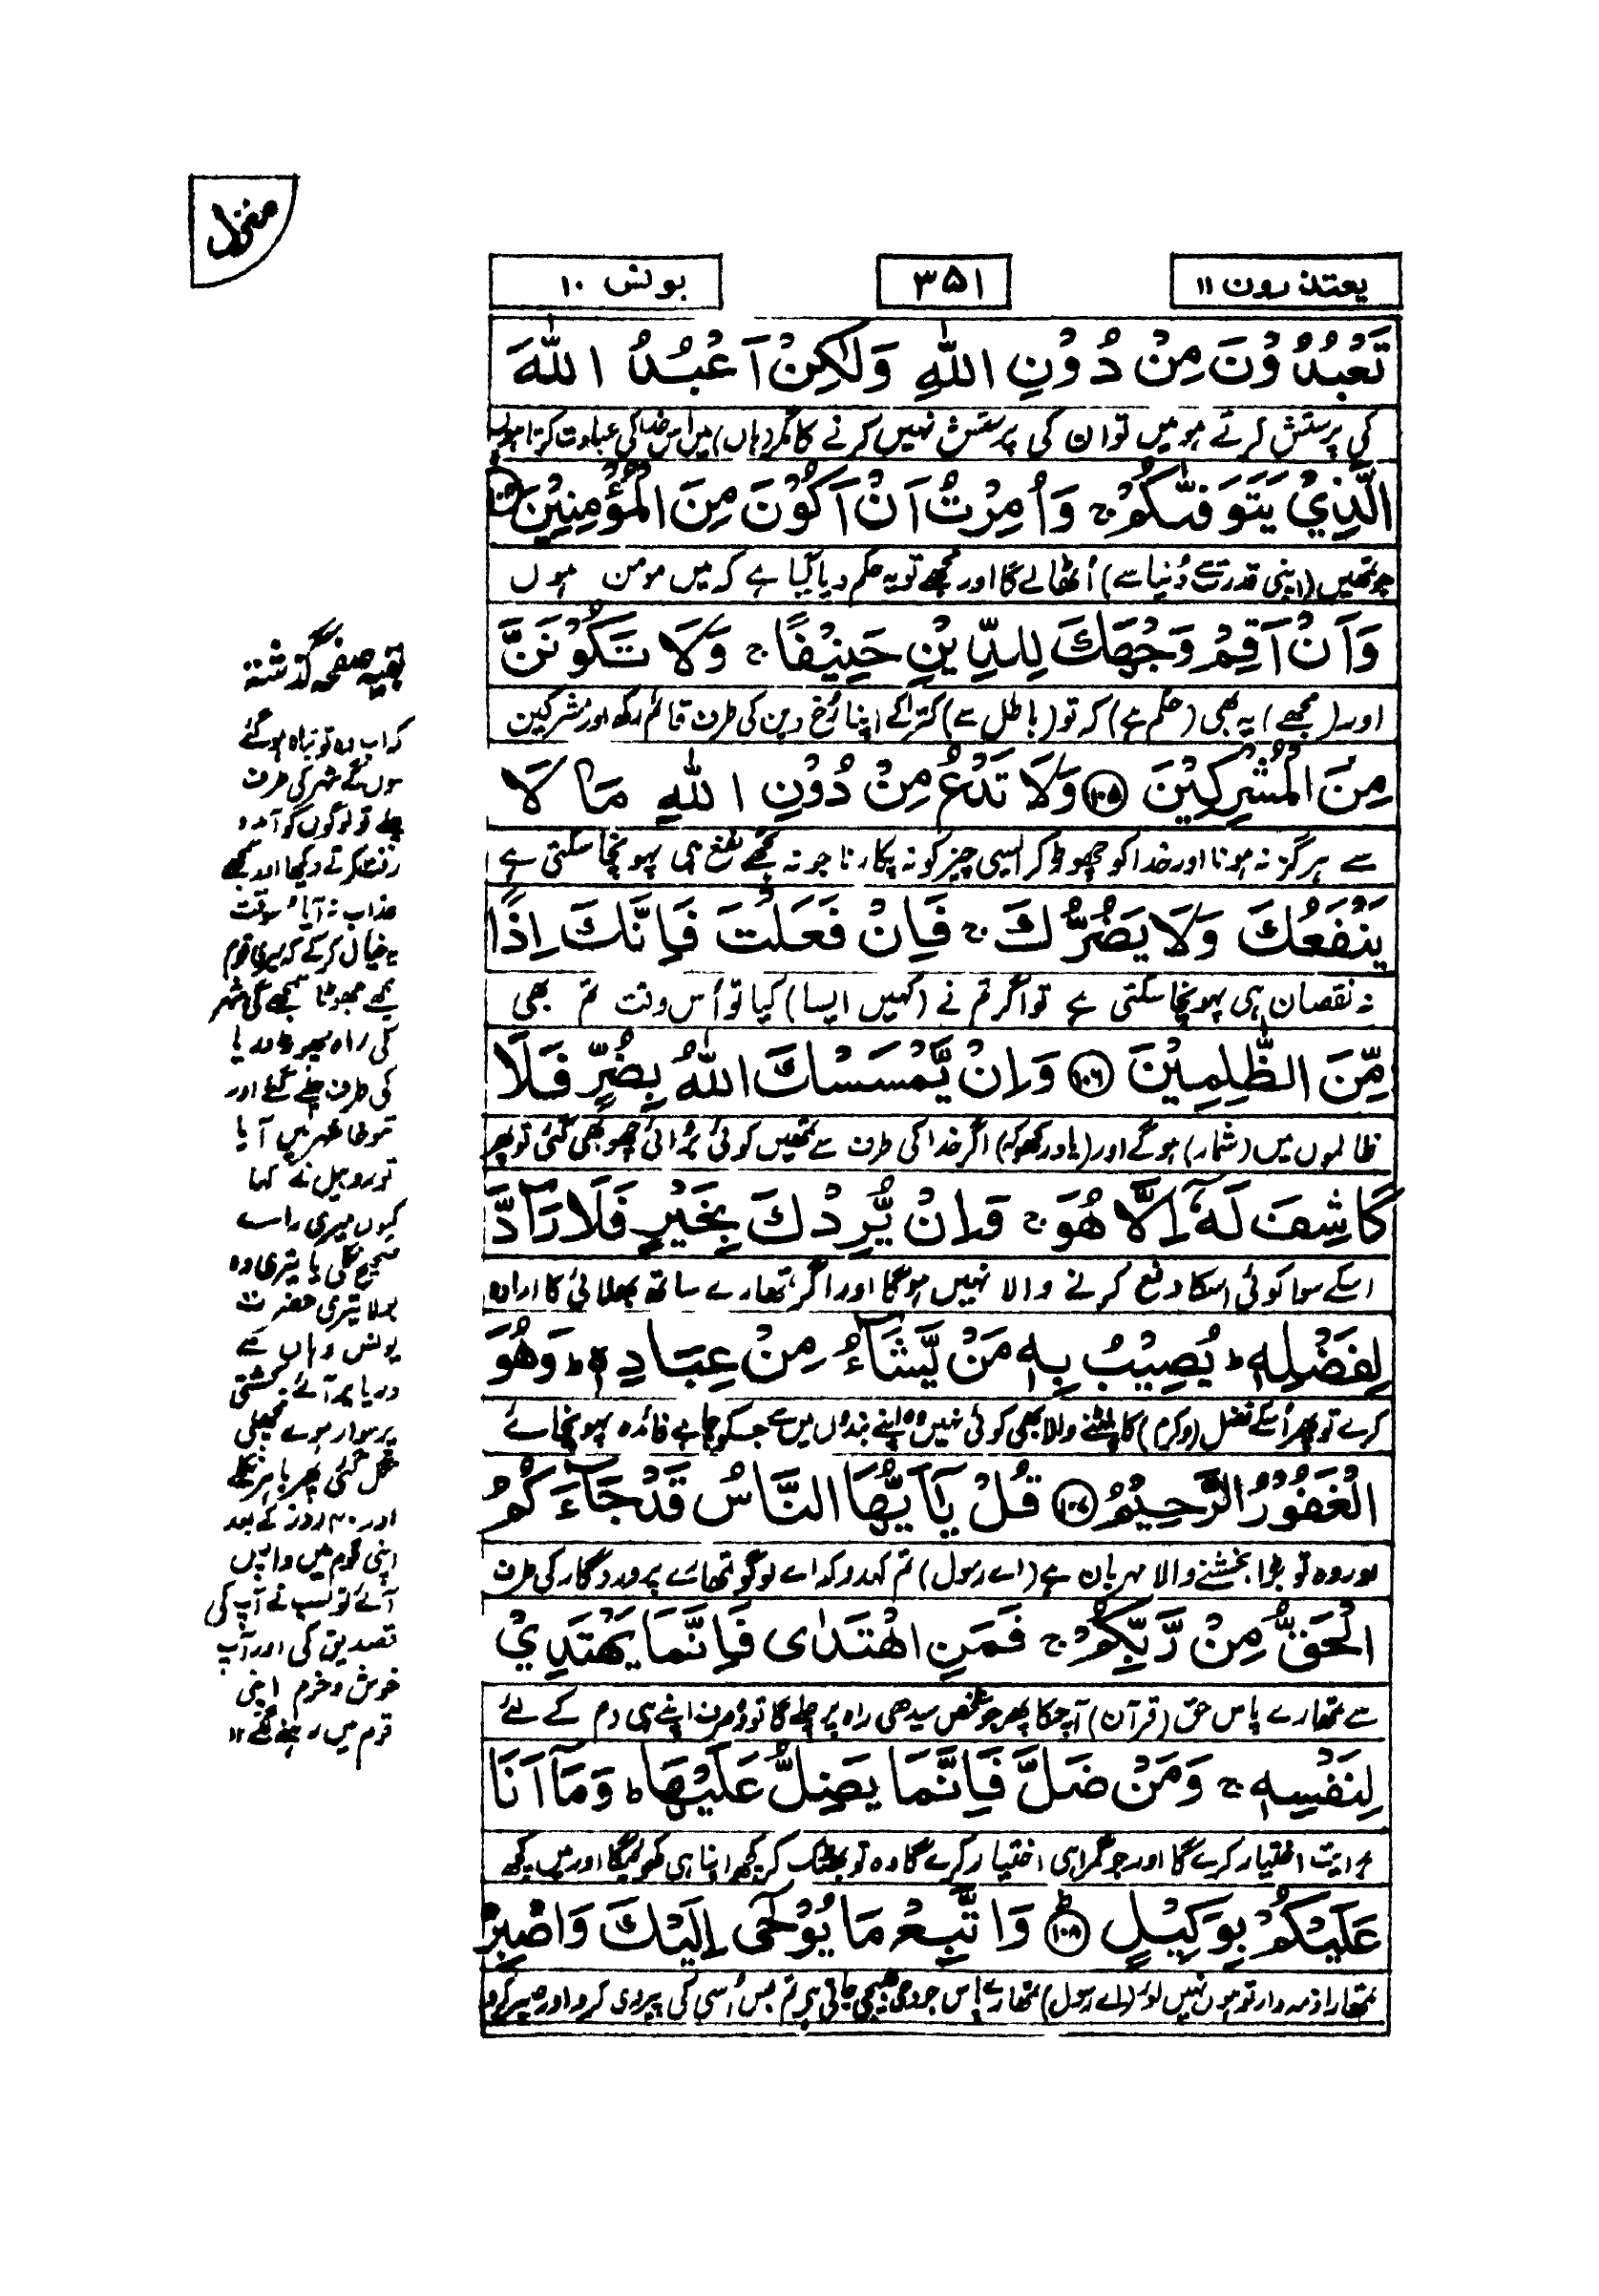 منزل
یعتذرون ۱۱
۳۵۱
یونس ۱۰
تَعْبُدُوْنَ مِنْ دُوْنِ اللّٰهِ وَلٰكِنْ اَعْبُدُ اللّٰهَ
کی پرستش کرتے ہو میں تو ان کی پرستش نہیں کرنے کا مگر (ہاں) میں اس خدا کی عبادت کرتا ہوں
الَّذِيْ يَتَوَفّٰىكُمْ ۚ وَاُمِرْتُ اَنْ اَكُوْنَ مِنَ الْمُؤْمِنِيْنَ
جو تمھیں (اپنی قدرت سے دُنیا سے) اُٹھا لے گا اور مجھے تو یہ حکم دیا گیا ہے کہ میں مومن ہوں
وَاَنْ اَقِمْ وَجْهَكَ لِلدِّيْنِ حَنِيْفًا ۚ وَلَا تَكُوْنَنَّ
اور (مجھے) یہ بھی (حکم ہے) کہ تو (باطل سے) کترا کے اپنا رُخ دین کی طرف قائم رکھ اور مشرکین
مِنَ الْمُشْرِكِيْنَ ۱۰۵ وَلَا تَدْعُ مِنْ دُوْنِ اللّٰهِ مَا لَا
سے ہرگز نہ ہونا اور خدا کو چھوڑ کر ایسی چیز کو نہ پکارنا جو نہ تجھے نفع ہی پہونچا سکتی ہے
يَنْفَعُكَ وَلَا يَضُرُّكَ ۚ فَاِنْ فَعَلْتَ فَاِنَّكَ اِذًا
نہ نقصان ہی پہونچا سکتی ہے تو اگر تم نے (کہیں ایسا) کیا تو اُس وقت تم بھی
مِّنَ الظّٰلِمِيْنَ ۱۰۶ وَاِنْ يَّمْسَسْكَ اللّٰهُ بِضُرٍّ فَلَا
ظالموں میں (شمار) ہوگے اور (یاد رکھو کہ) اگر خدا کی طرف سے تمھیں کوئی بُرائی چھو بھی گئی تو پھر
كَاشِفَ لَهٗۤ اِلَّا هُوَ ۚ وَاِنْ يُّرِدْكَ بِخَيْرٍ فَلَا رَآدَّ
اسکے سوا کوئی اسکا دفع کرنے والا نہیں ہوگا اور اگر تمھارے ساتھ بھلائی کا ارادہ
لِفَضْلِهٖ ؕ يُصِيْبُ بِهٖ مَنْ يَّشَآءُ مِنْ عِبَادِهٖ ؕ وَهُوَ
کرے تو پھر اُسکے فضل (و کرم) کا پلٹنے والا بھی کوئی نہیں وہ اپنے بندوں میں سے جسکو چاہے فائدہ پہونچائے
الْغَفُوْرُ الرَّحِيْمُ ۱۰۷ قُلْ يٰۤاَيُّهَا النَّاسُ قَدْ جَآءَكُمُ
اور وہ تو بڑا بخشنے والا مہربان ہے (اے رسول) تم کہدو کہ اے لوگو تمھارے پروردگار کی طرف
الْحَقُّ مِنْ رَّبِّكُمْ ۚ فَمَنِ اهْتَدٰى فَاِنَّمَا يَهْتَدِيْ
سے تمھارے پاس حق (قرآن) آچکا پھر جو شخص سیدھی راہ پر چلے گا تو وہ صرف اپنے ہی دم کے لئے
لِنَفْسِهٖ ۚ وَمَنْ ضَلَّ فَاِنَّمَا يَضِلُّ عَلَيْهَا ؕ وَمَآ اَنَا
ہدایت اختیار کرے گا اور جو گمراہی اختیار کرے گا وہ تو بھٹک کر کچھ اپنا ہی کھوئیگا اور میں کچھ
عَلَيْكُمْ بِوَكِيْلٍ ۱۰۸ وَاتَّبِعْ مَا يُوْحٰٓى اِلَيْكَ وَاصْبِرْ
تمھارا ذمہ دار تو ہوں نہیں اور (اے رسول) تمھارے پاس جو وحی بھیجی جاتی ہے تم بس اُسی کی پیروی کرو اور صبر کرو
بقیہ صفحہ گذشتہ
کہ اب وہ تو تباہ ہوگئے
ہوں گے شہر کی طرف
چلے تو لوگوں کو آمد و
رفت کرتے دیکھا اور سمجھے
عذاب نہ آیا اسوقت
یہ خیال کرکے کہ میری قوم
مجھے جھوٹا سمجھے گی شہر
کی راہ چھوڑ دریا
کی طرف چلے گئے اور
تنوخا شہر میں آیا
تو روبیل نے کہا
کیوں میری رائے
صحیح نکلی یا تیری وہ
بولا تیری حضرت
یونس وہاں سے
دریا پر آئے کشتی
پر سوار ہوے مچھلی
نگل گئی پھر باہر نکلے
اور ۴۰ روز کے بعد
اپنی قوم میں واپس
آئے تو سب نے آپ کی
تصدیق کی اور آپ
خوش و خرم اپنی
قوم میں رہنے لگے ۱۲